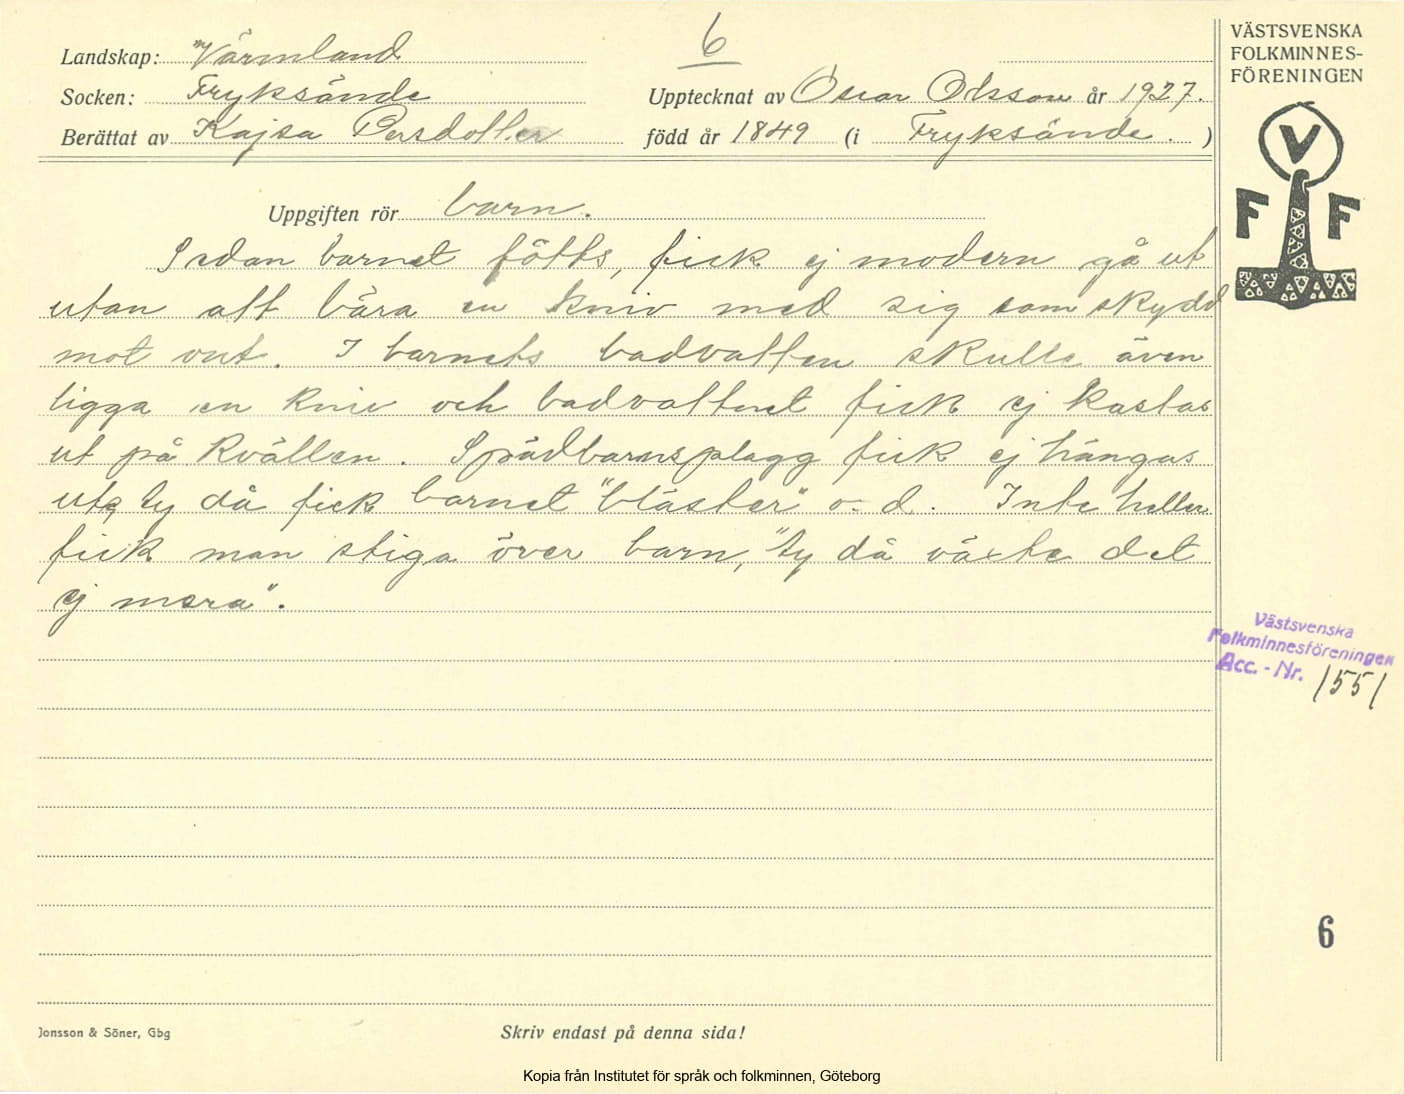 6
Landskap: Värmland
Socken: Fryksände
Upptecknat av Oscar Olsson år 1927.
Berättat av Kajsa Persdotter
född år 1849 (i Fryksände. )
Uppgiften rör barn.
Sedan barnet fötts, fick ej modern gå ut
utan att bära en kniv med sig som skydd
mot ont. I barnets badvatten skulle även
ligga en kniv och badvattnet fick ej kastas
ut på kvällen. Spädbarnsplagg fick ej hängas
ute, ty då fick barnet "bläster" o. d. Inte heller
fick man stiga över barn, "ty då växte det
ej mera".
VÄSTSVENSKA
FOLKMINNES-
FÖRENINGEN
V
F F
Västsvenska
Folkminnesföreningen
Acc. - Nr. 1551
6
Jonsson & Söner, Gbg
Skriv endast på denna sida!
Kopia från Institutet för språk och folkminnen, Göteborg